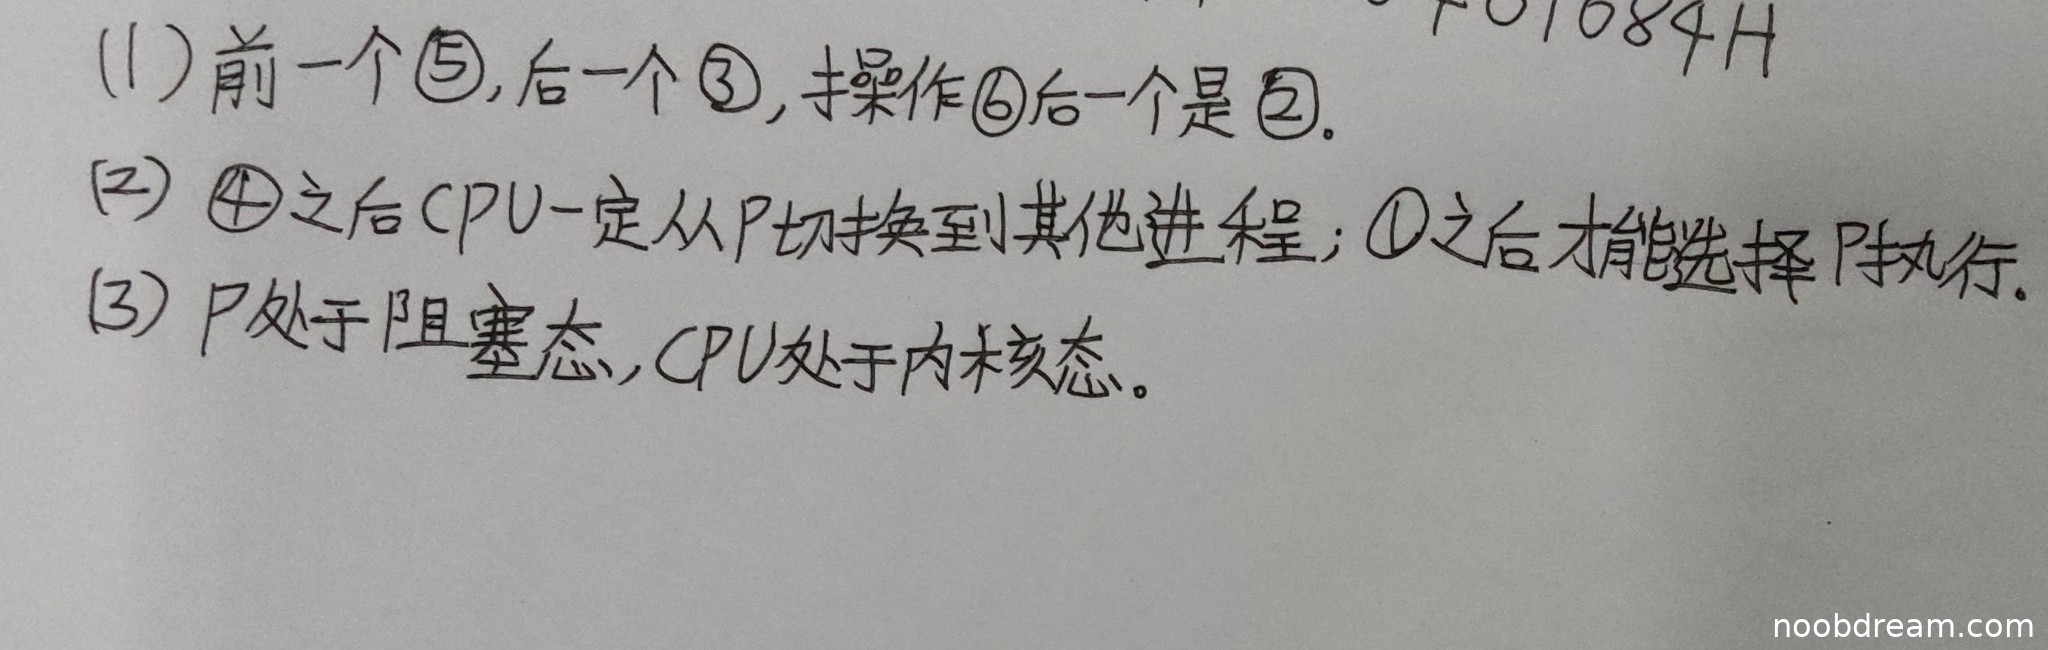 01084H
(1) 前一个⑤,后一个③,操作⑥后一个是②.
(2) ④之后CPU一定从P切换到其他进程;①之后才能选择P执行.
(3) P处于阻塞态,CPU处于内核态。
noobdream.com